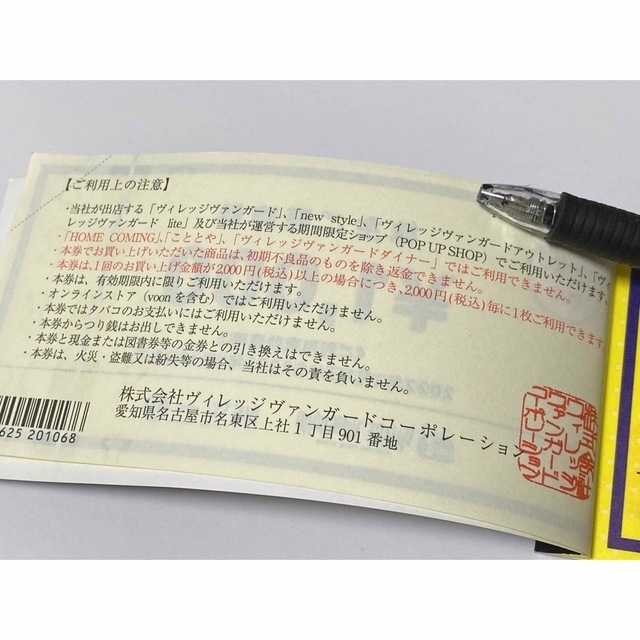 【ご利用上の注意】
・当社が出店する「ヴィレッジヴァンガード」、「new style」、「ヴィレッジヴァンガードアウトレット」、「ヴィ
レッジヴァンガード lite」及び当社が運営する期間限定ショップ（POP UP SHOP）でご利用いただけます。
・「HOME COMING」、「こととや」、「ヴィレッジヴァンガードダイナー」ではご利用できません。
・本券でお買い上げいただいた商品は、初期不良品のものを除き返金できません。
・本券は、1回のお買い上げ金額が2,000円(税込)以上の場合につき、2,000円(税込)毎に1枚ご利用できます。
・本券は、有効期限内に限りご利用いただけます。
・オンラインストア（voonを含む）ではご利用いただけません。
・本券ではタバコのお支払いにはご利用いただけません。
・本券からつり銭はお出しできません。
・本券と現金または図書券等の金券との引き換えはできません。
・本券は、火災・盗難又は紛失等の場合、当社はその責を負いません。
株式会社ヴィレッジヴァンガードコーポレーション
愛知県名古屋市名東区上社1丁目901番地
625 201068